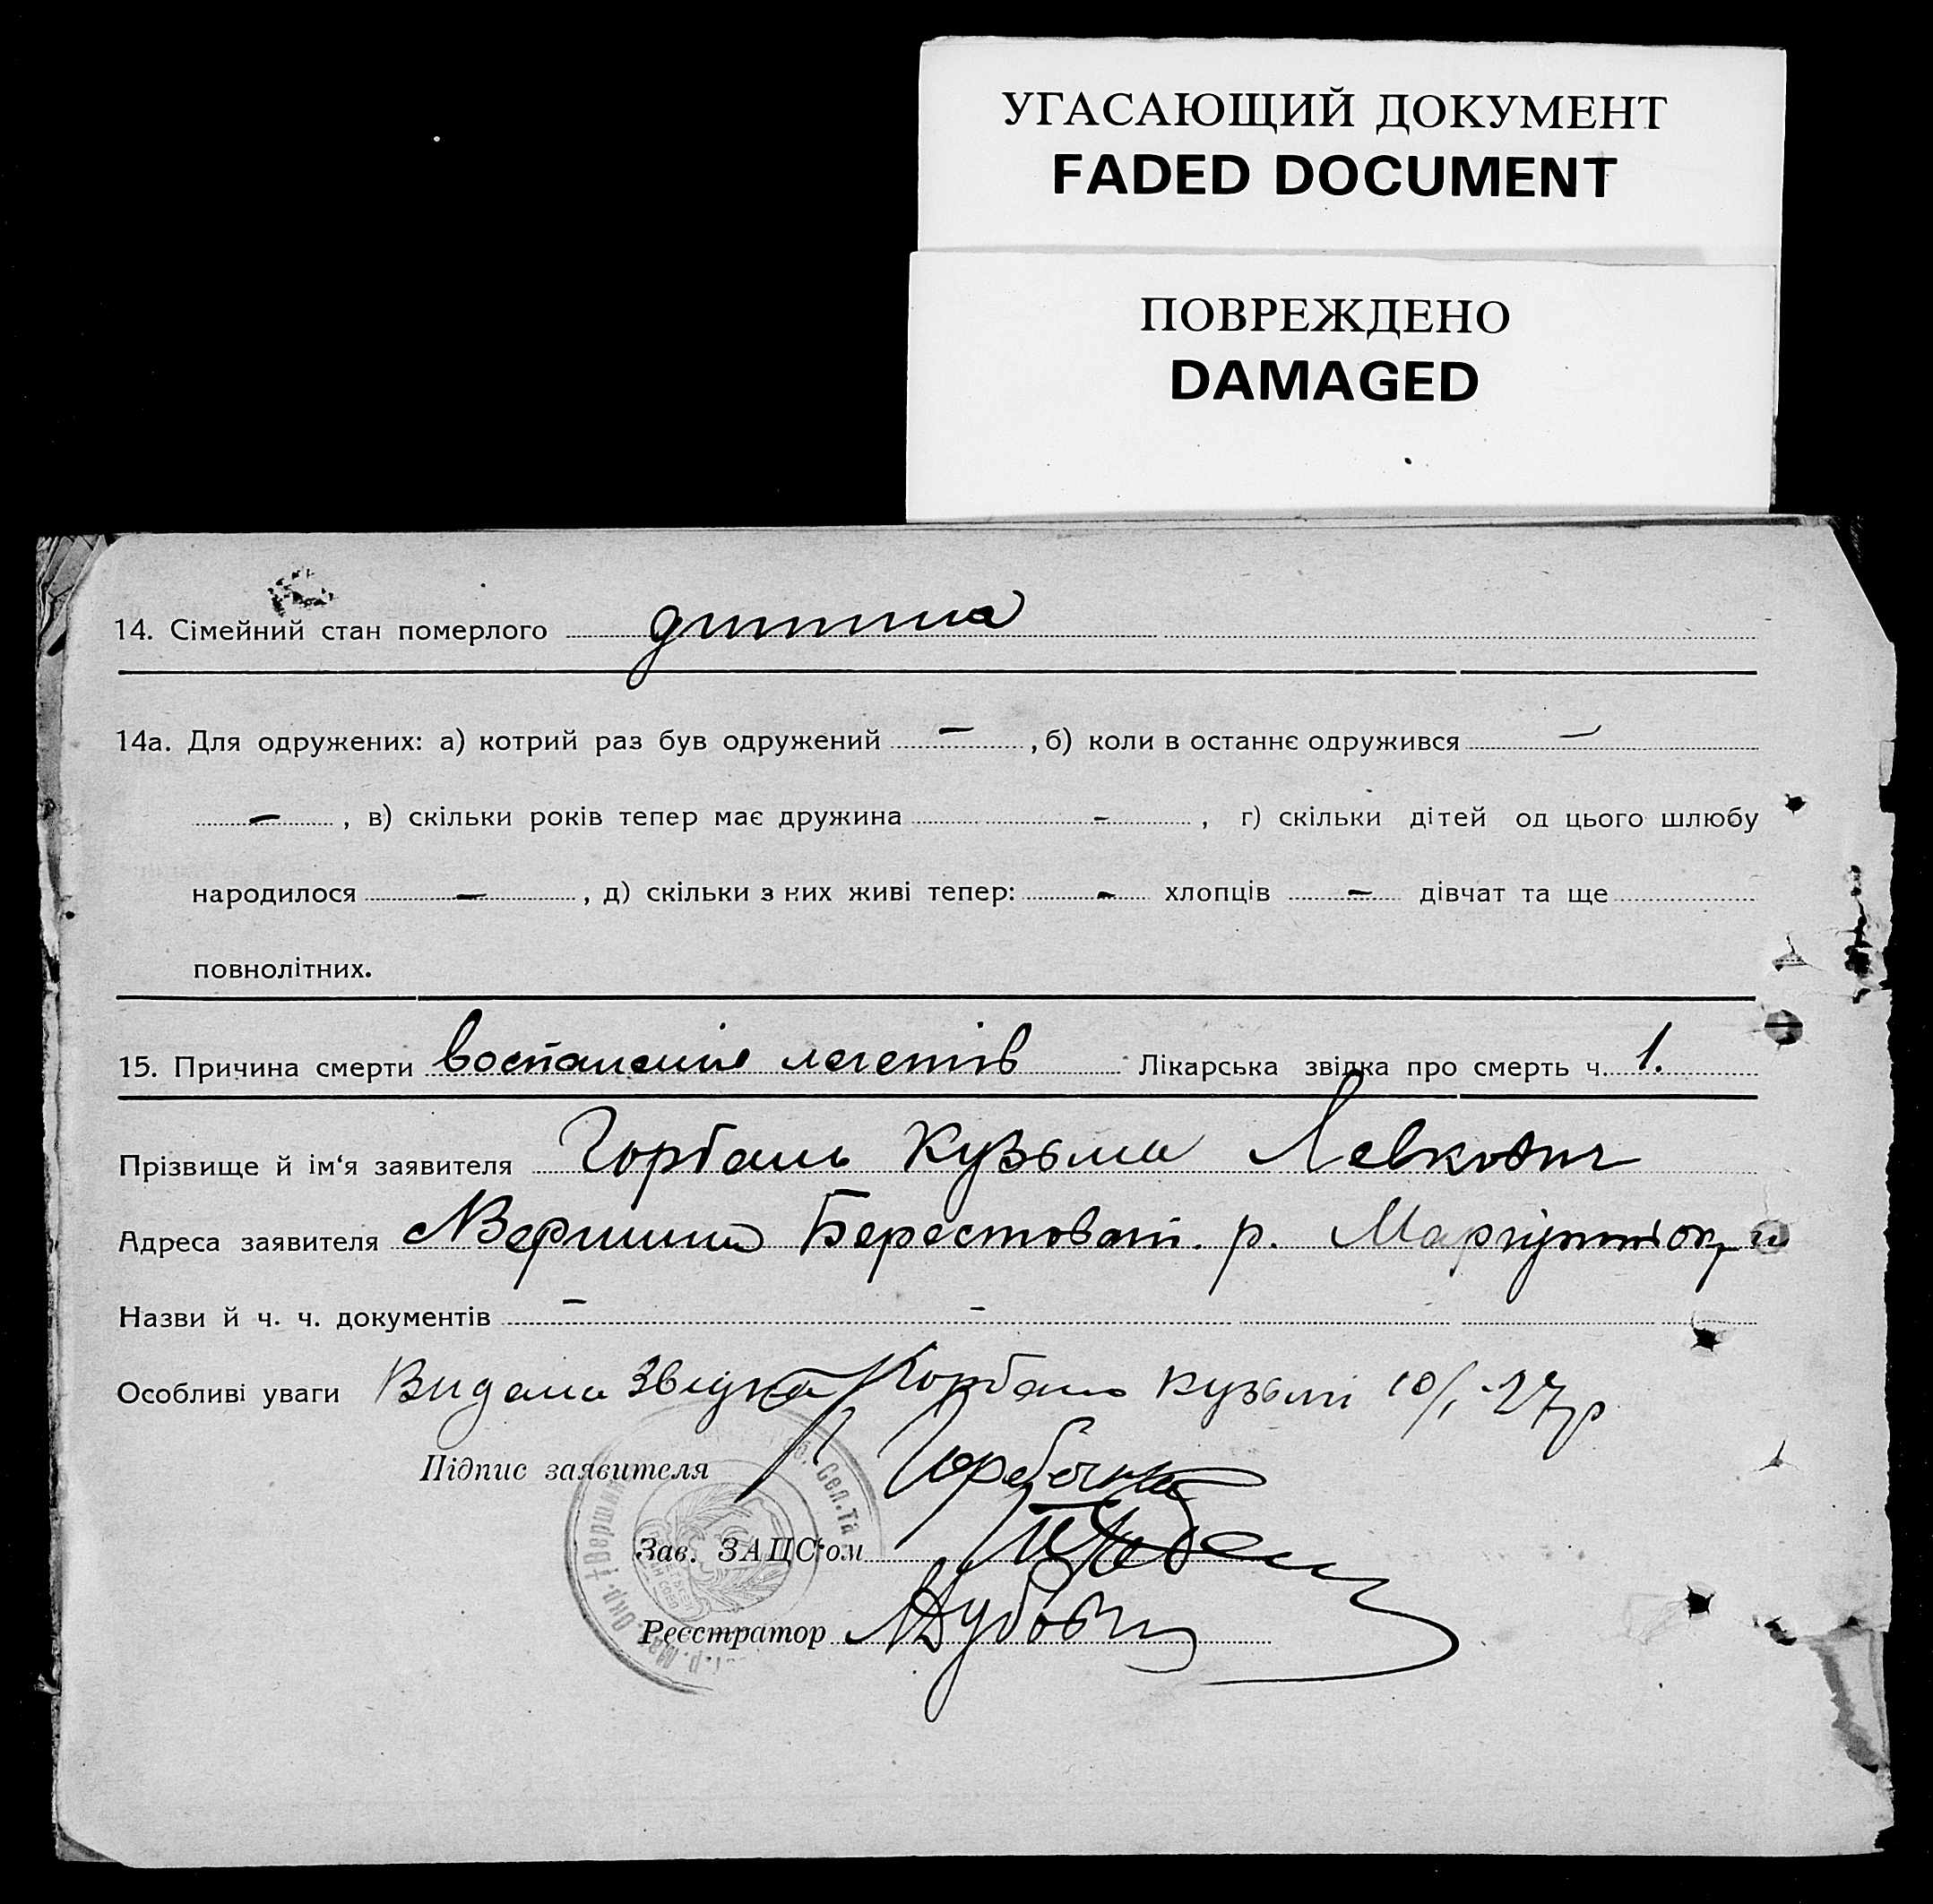 УГАСАЮЩИЙ ДОКУМЕНТ
FADED DOCUMENT
ПОВРЕЖДЕНО
DAMAGED
14. Сімейний стан померлого дитина
14а. Для одружених: а) котрий раз був одружений — , б) коли в останнє одружився —
— , в) скільки років тепер має дружина - , г) скільки дітей од цього шлюбу
народилося — , д) скільки з них живі тепер: - хлопців — дівчат та ще
повнолітних.
15. Причина смерти воспаления легетів Лікарська звідка про смерть ч. 1.
Прізвище й ім'я заявителя Горбань Кузьма Левкович
Адреса заявителя Вершина Берестоват. р. Маріупіл окр
Назви й ч. ч. документів — -
Особливі уваги Видана Звідка Горбань Кузьмі 10/I-27р
Підпис заявителя К Горбань
Зав. ЗАЦС'ом
Реєстратор Дубович
Сел. Та
Окр. Вершин